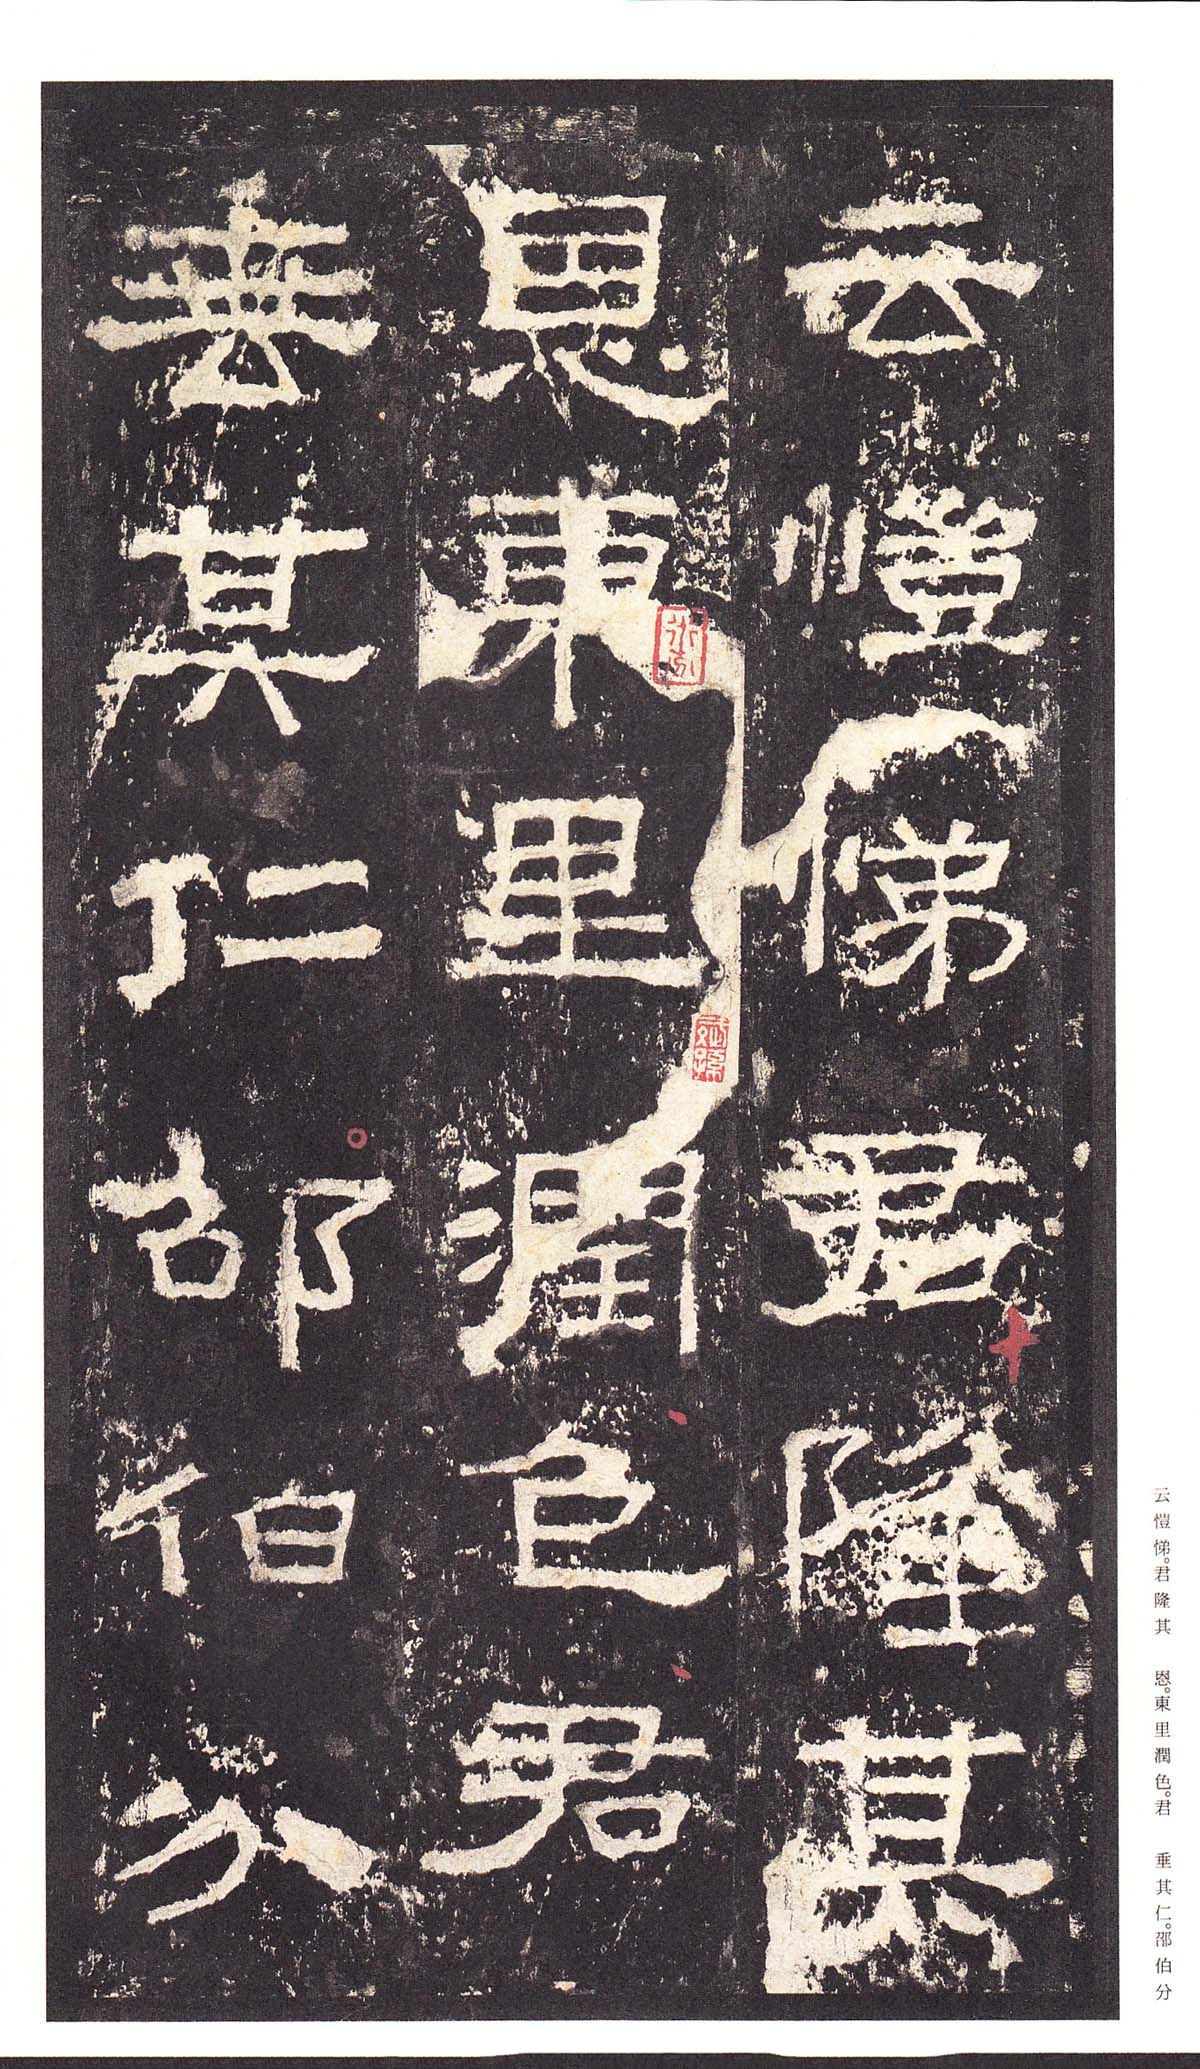 云愷悌君隆其
恩東里潤色君
垂其仁邵伯分
云愷悌。君隆其　恩。東里潤色。君　垂其仁。邵伯分